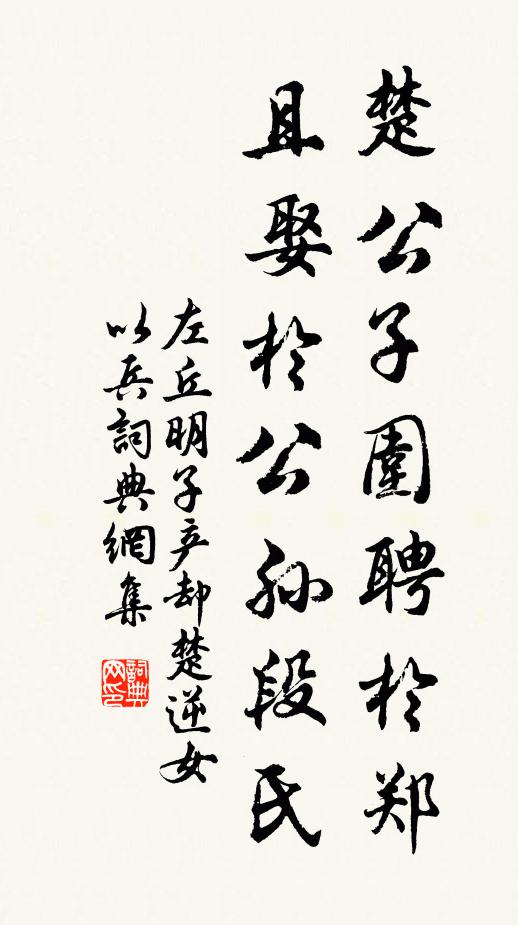 楚公子圍聘於郑
且娶於公孙段氏
左丘明子产却楚逆女
以兵詞典網集
詞典网印